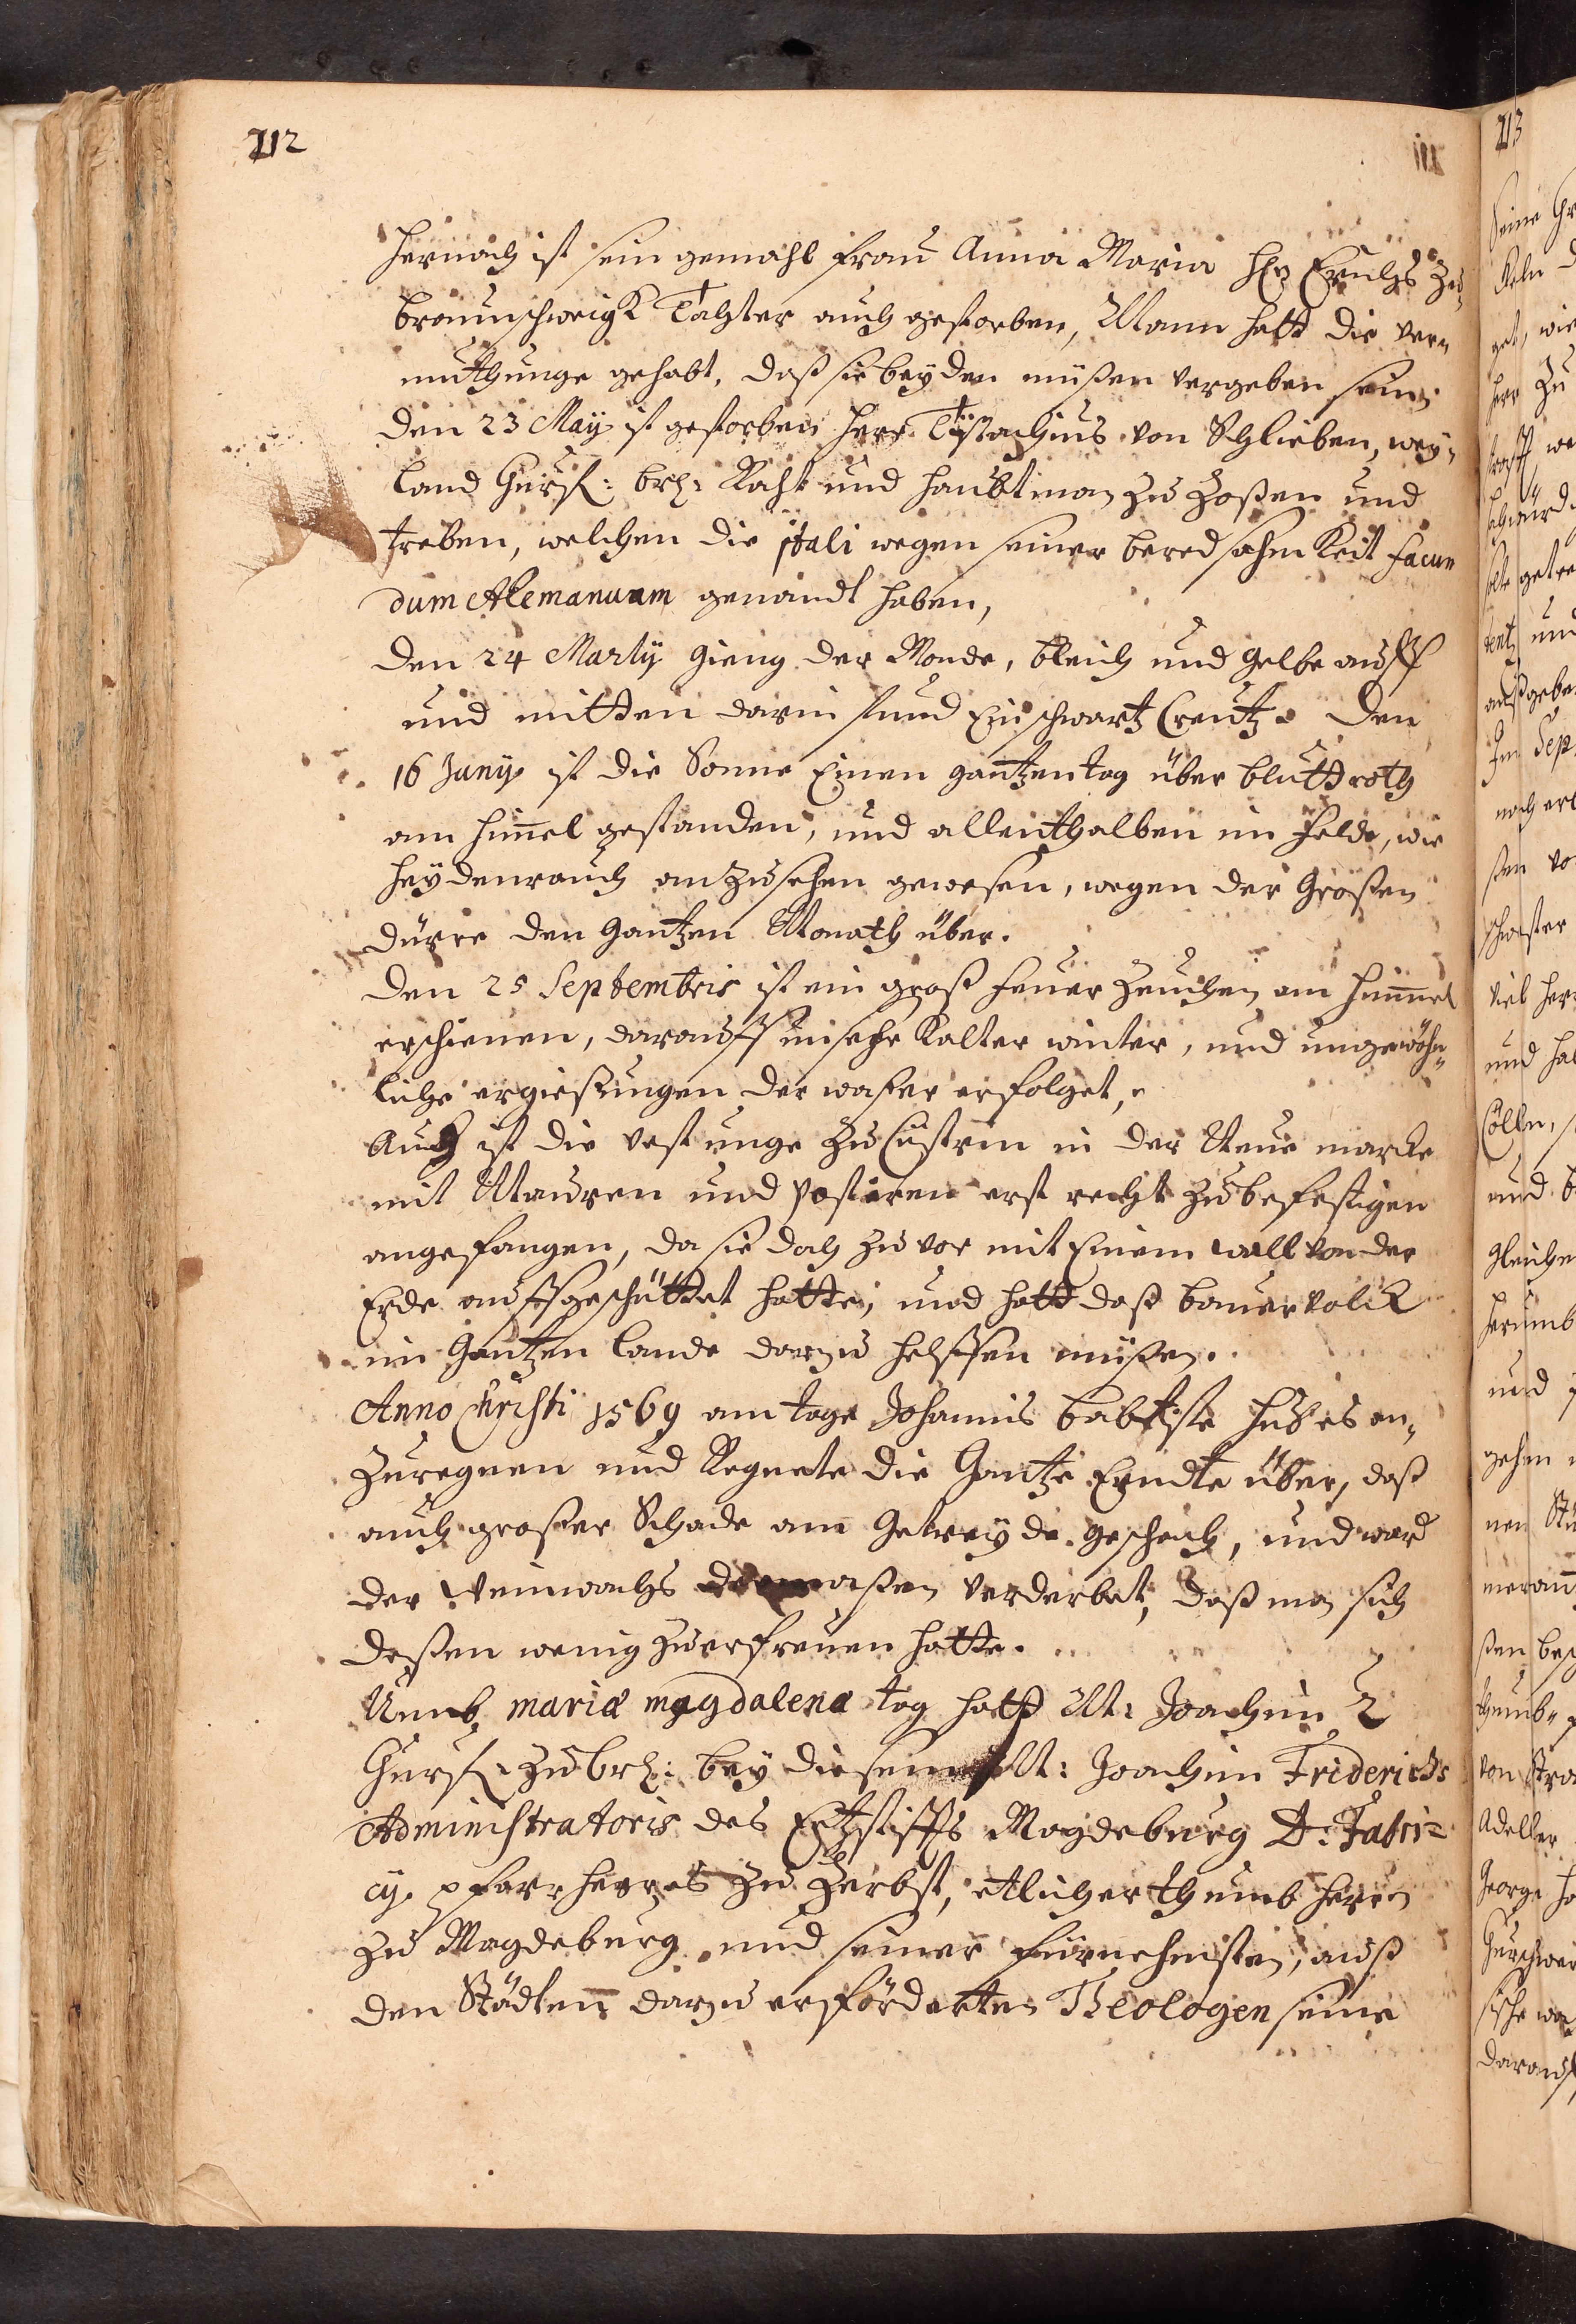 212
Hernach ist sein gemahl Frau Anna Maria Hl Erichs zu
braunschweigk Tochter auch gestorben, Mann hatt die ver=
muthunge gehabt, daß sie beyden müßen vergeben sein
Den 23 May ist gestorben Herr Eustachius von Schlieben, wey=
land Churf: brl: Raht und Haubtman zu Zoßen und
Treben, welchen die itali wegen seiner beredsahmkeit facun
dum Alemanuam genandt haben,
Den 24 Martij gieng der Monde, bleich und gelbe auff
und mitten darin stund Ein schwartz Creutz. Den
16 Junij ist die Sonne Einen gantzen tag über bluttroth
am himel gestanden, und allenthalben im Felde, wie
Heydenrauch anzusehen gewesen, wegen der Großen
dürre den Gantzen Monath über.
Den 25 Septembris ist ein groß feuer Zeuchen am himmel
erschienen, darauff ein sehr kalter winter, und ungewöhn=
liche ergießungen der waßer erfolget,
Auch ist die vestunge zu Cüstrin in der Neue marcke
mit Mauren und Posteren erst recht zu befestigen
angefangen, da sie doch zu vor mit Einem wall von der
Erde auffgeschüttet hatte, und hatt daß bauervolck
im Gantzen Lande darzu helffen müßen.
Anno Christi 1569 am tage Johannis babtiste hub es an=
zuregnen und Regnete die Gantze Erndte über, daß
auch großer Schade am Getreyde geschach, und ward
der Weinwachs dermaßen verderbet, daß man sich
deßen wenig zu erfreuen hatte.
Umb mariæ magdalenæ tag hatt M: Joachim 2
Churf: zu brl: bey diesem M: Joachim Friderichs
Administratoris des Ertzstiffts Magdeburg D: Fabri=
cij. pfarrherres zu Zerbst, etlicher thumbherren
zu Magdeburg und seiner fürnehmsten, auß
den Städten darzu erförderten Theologen seine
213